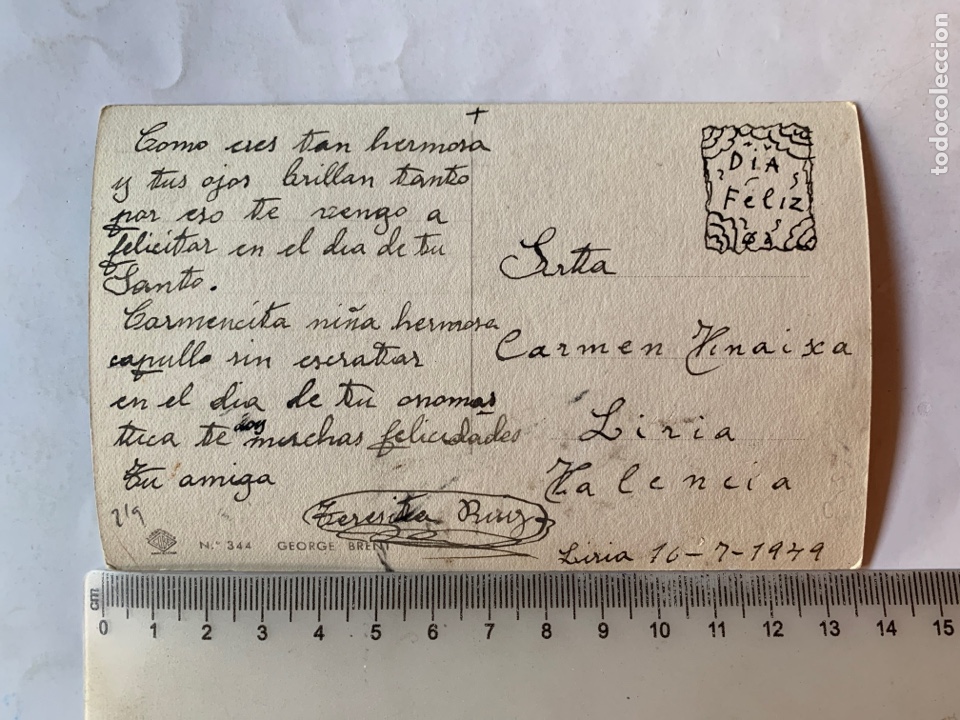 +
Como eres tan hermosa
y tus ojos brillan tanto
por eso te vengo a
felicitar en el dia de tu
Santo.
Carmencita niña hermosa
capullo sin
en el dia de tu onomas
tica te doy muchas felicidades
Tu amiga
Teresita Ruiz
219
Nº 344 GEORGE BRENT
DiA
Féliz
Srtta
Carmen
Liria
Valencia
Liria 16-7-1949
cm
0 1 2 3 4 5 6 7 8 9 10 11 12 13 14 15
todocoleccion